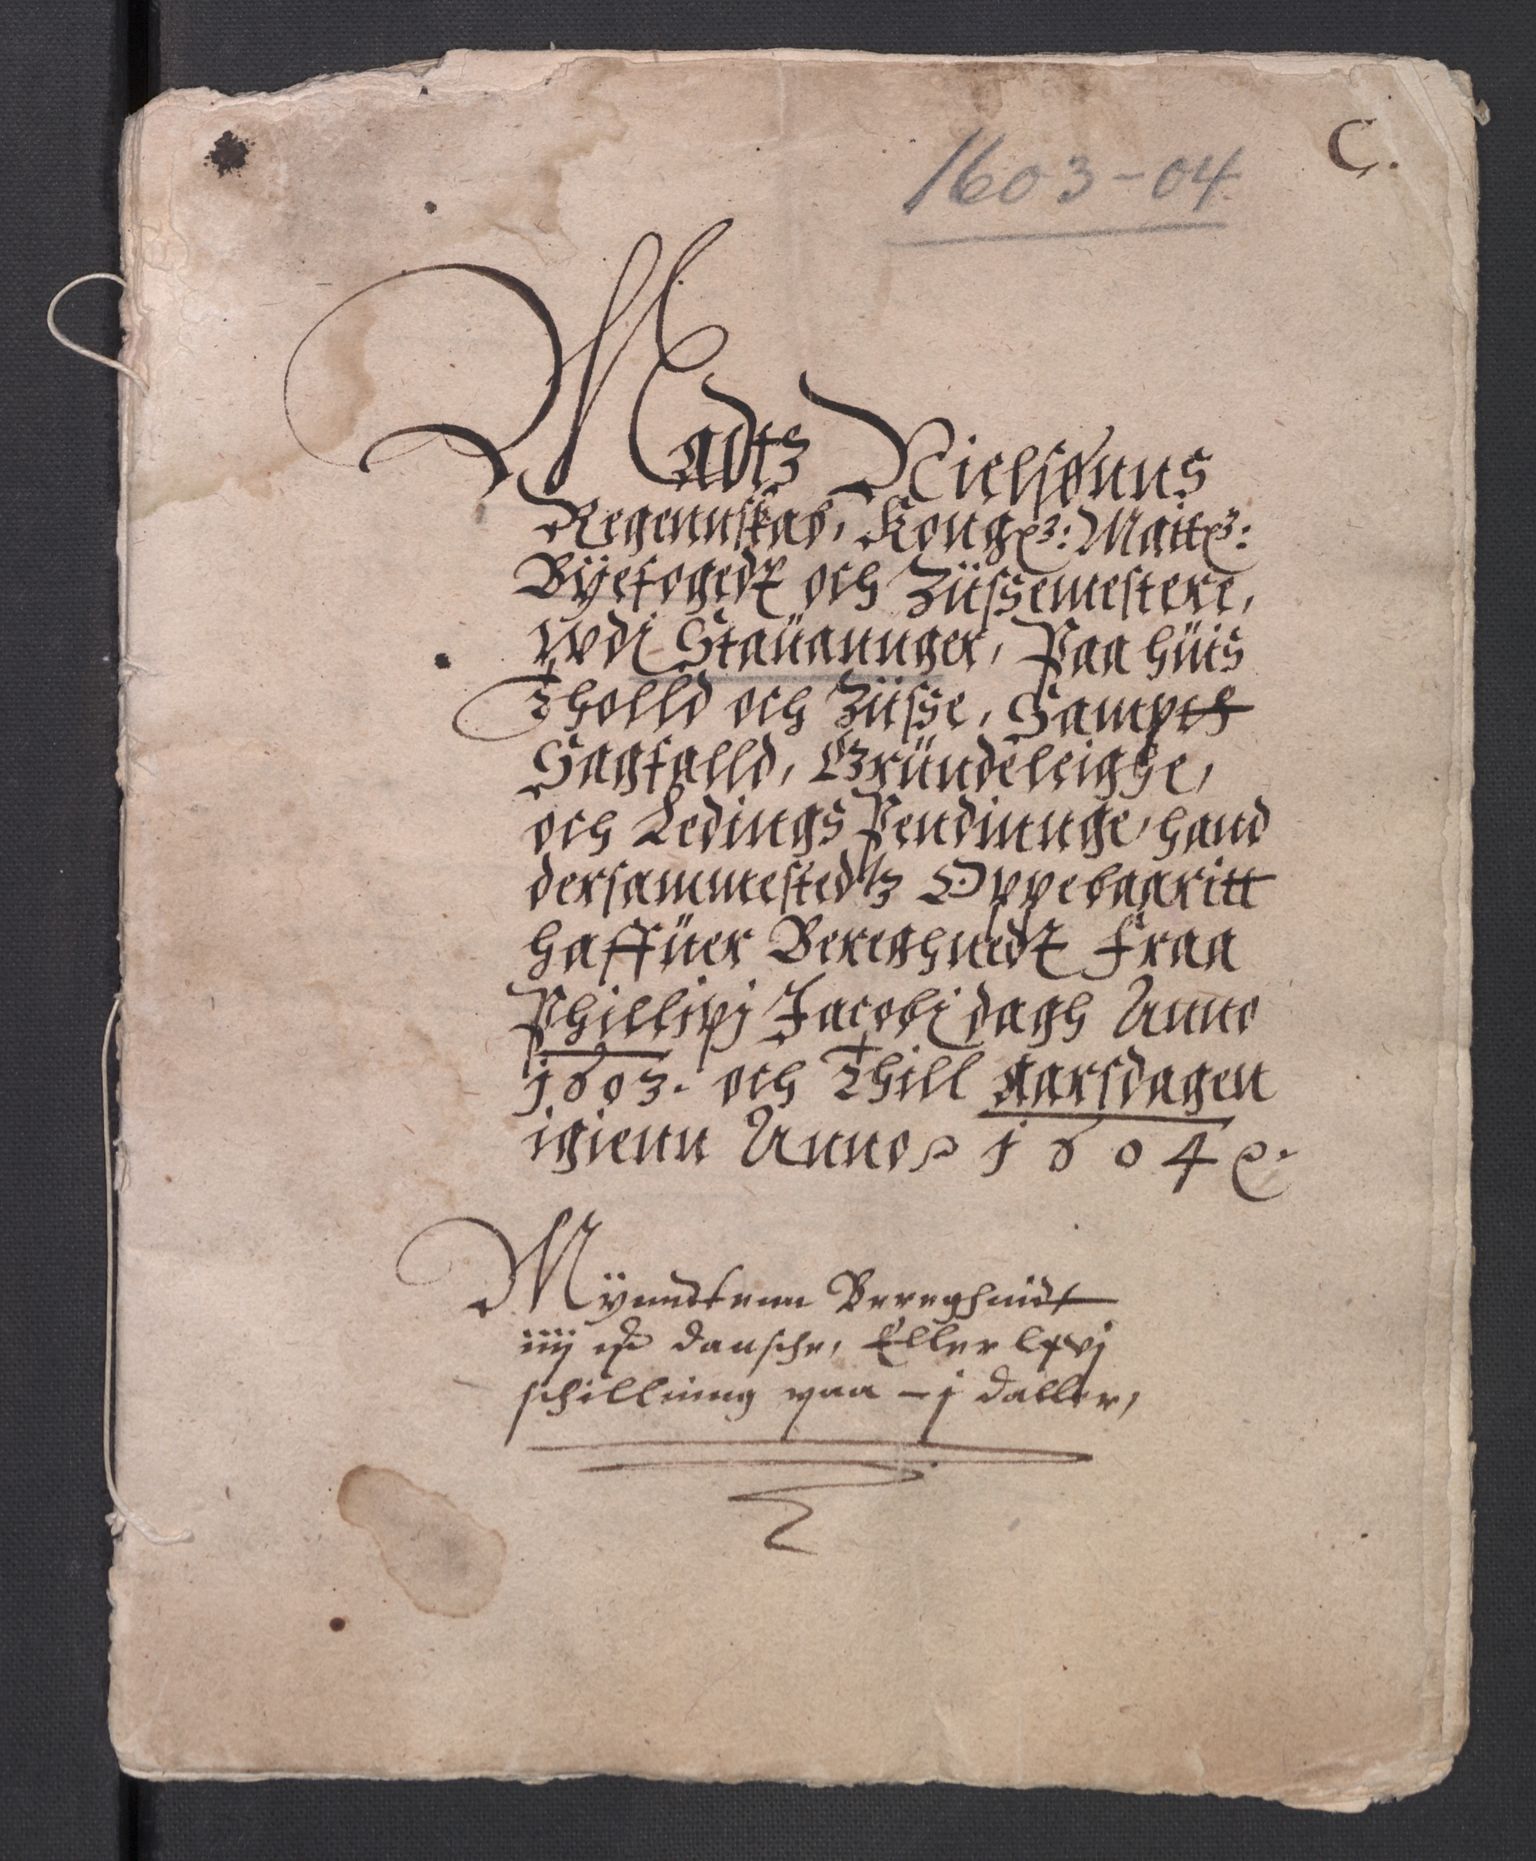 C.
1603-04
Madtz Nielsønns
Regennskab, Kong: Maitt:
Byefogedt och Züssemestere,
wdi Staüannger, Paa hüis
Tholld och Züsse, Sampt
Sagfalld, Gründeleigge,
och Ledings Pendinnge, hand
dersammestedtz Oppebaaritt
haffüer Bereghnedt fraa
Phillipj Jacobi dagh Anno
1603. och Thill aarsdagen
igienn Anno 1604
Myndtenn Bereghnidt
iiij dansche, Eller lxvj
schillinng paa - j daller,